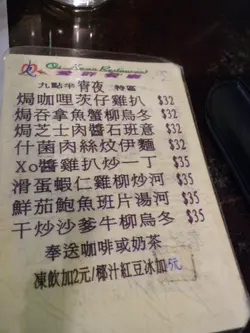 九點半宵夜 特區
焗咖哩茨仔雞扒 $32
焗吞拿魚蟹柳烏冬 $32
焗芝士肉醬石班意 $32
什菌肉絲炆伊麵 $32
Xo醬雞扒炒一丁 $35
滑蛋蝦仁雞柳炒河 $35
鮮茄鮑魚班片湯河 $35
干炒沙爹牛柳烏冬 $35
奉送咖啡或奶茶
凍飲加2元/椰汁紅豆冰加5元